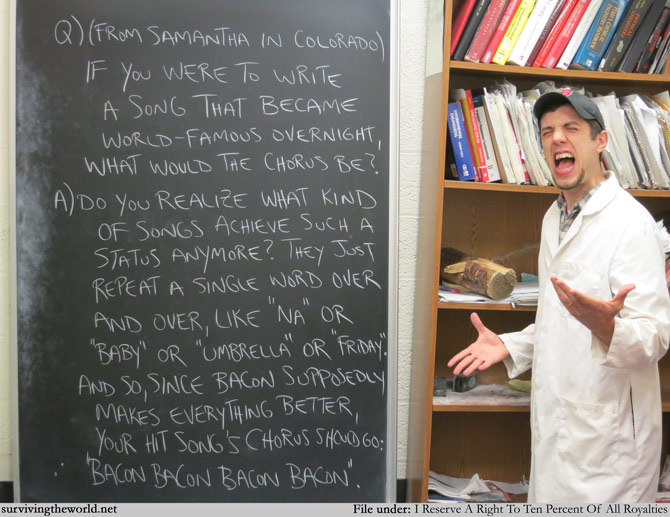 Q) (FROM SAMANTHA IN COLORADO)
IF YOU WERE TO WRITE
A SONG THAT BECAME
WORLD-FAMOUS OVERNIGHT,
WHAT WOULD THE CHORUS BE?
A) DO YOU REALIZE WHAT KIND
OF SONGS ACHIEVE SUCH A
STATUS ANYMORE? THEY JUST
REPEAT A SINGLE WORD OVER
AND OVER, LIKE "NA" OR
"BABY" OR "UMBRELLA" OR "FRIDAY".
AND SO, SINCE BACON SUPPOSEDLY
MAKES EVERYTHING BETTER,
YOUR HIT SONG'S CHORUS SHOULD GO:
"BACON BACON BACON BACON".
survivingtheworld.net
File under: I Reserve A Right To Ten Percent Of All Royalties